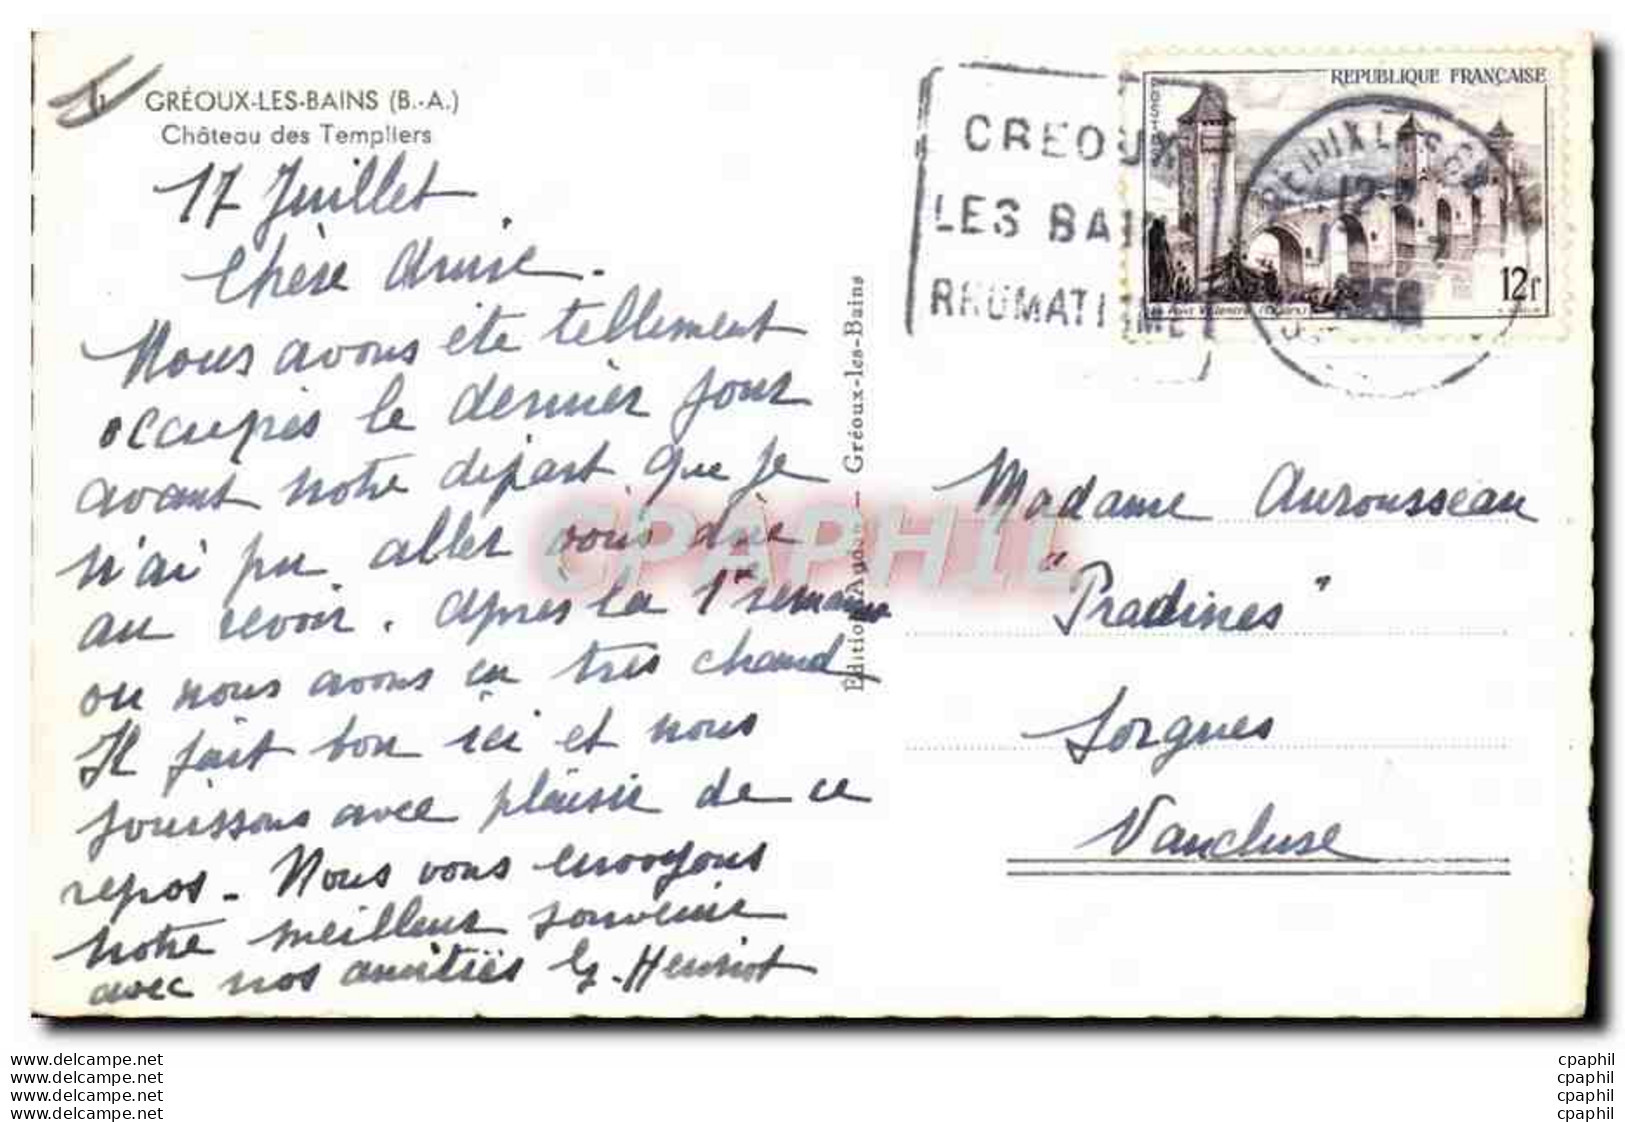 GRÉOUX-LES-BAINS (B.-A.)
Château des Templiers
17 Juillet
Chère Amie.
Nous avons été tellement
occupés le dernier jour
avant notre départ que je
n'ai pu aller vous dire
au revoir. Après la 1re semaine
ou nous avons eu très chaud
Il fait bon ici et nous
jouissons avec plaisir de ce
repos. Nous vous envoyons
notre meilleur souvenir
avec nos amitiés G. Henriot
Edition Ago — Gréoux-les-Bains
CPAPHIL
GREOUX
LES BAINS
RHUMATISME
REPUBLIQUE FRANÇAISE
12f
Madame Aurousseau
"Pradines"
Sorgues
Vaucluse
www.delcampe.net
www.delcampe.net
www.delcampe.net
www.delcampe.net
cpaphil
cpaphil
cpaphil
cpaphil